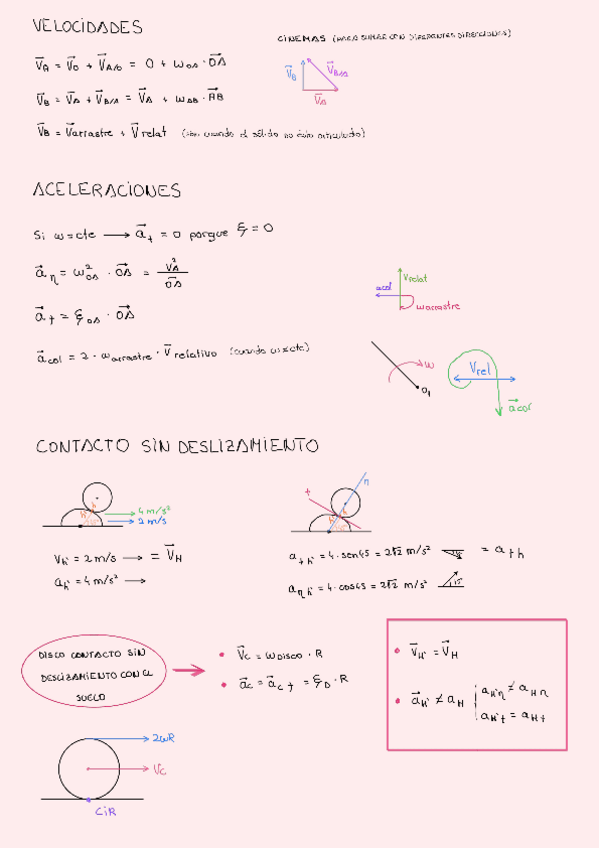 VELOCIDADES
CINEMAS (PARA SUMAR CON DIFERENTES DIRECCIONES)
V⃗A = V⃗O + V⃗A/O = O + ωOA · OA⃗
V⃗B V⃗B/A
V⃗A
V⃗B = V⃗A + V⃗B/A = V⃗A + ωAB · AB⃗
V⃗B = V⃗arrastre + V⃗relat (solo cuando el sólido no está articulado)
ACELERACIONES
Si ω=cte ⟶ a⃗t = 0 porque ξ = 0
a⃗η = ω²OA · OA⃗ = V²A / OA⃗
acol Vrelat
ωarrastre
a⃗t = ξOA · OA⃗
a⃗col = 2 · ωarrastre · V⃗relativo (cuando ω≠cte)
ω O1
Vrel
a⃗col
CONTACTO SIN DESLIZAMIENTO
4 m/s²
2 m/s
t η
VH' = 2 m/s ⟶ = V⃗H
aH' = 4 m/s² ⟶
atH' = 4 · sen45 = 2√2 m/s² = atH
aηH' = 4 · cos45 = 2√2 m/s²
DISCO CONTACTO SIN
DESLIZAMIENTO CON EL
SUELO
• V⃗C = ωDISCO · R
• a⃗C = a⃗Ct = ξD · R
• V⃗H' = V⃗H
• a⃗H' ≠ aH | aH'η ≠ aHη
aH't = aHt
2ωR
VC
CIR